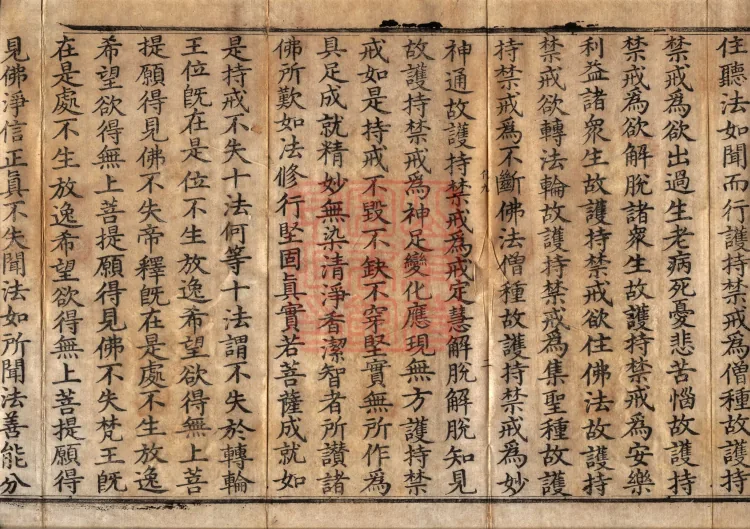 住聽法如聞而行護持禁戒為僧種故護持
禁戒為欲出過生老病死憂悲苦惱故護持
禁戒為欲解脫諸衆生故護持禁戒為安樂
利益諸衆生故護持禁戒欲住佛法故護持
禁戒欲轉法輪故護持禁戒為集聖種故護
持禁戒為不斷佛法僧種故護持禁戒為妙
神通故護持禁戒為戒定慧解脫解脫知見
故護持禁戒為神足變化應現無方護持禁
戒如是持戒不毀不缺不穿堅實無所作為
具足成就精妙無染清淨香潔智者所讚諸
佛所歎如法修行堅固真實若菩薩成就如
是持戒不失十法何等十法謂不失於轉輪
王位旣在是位不生放逸希望欲得無上菩
提願得見佛不失帝釋旣在是處不生放逸
希望欲得無上菩提願得見佛不失梵王旣
在是處不生放逸希望欲得無上菩提願得
見佛淨信正真不失聞法如所聞法善能分